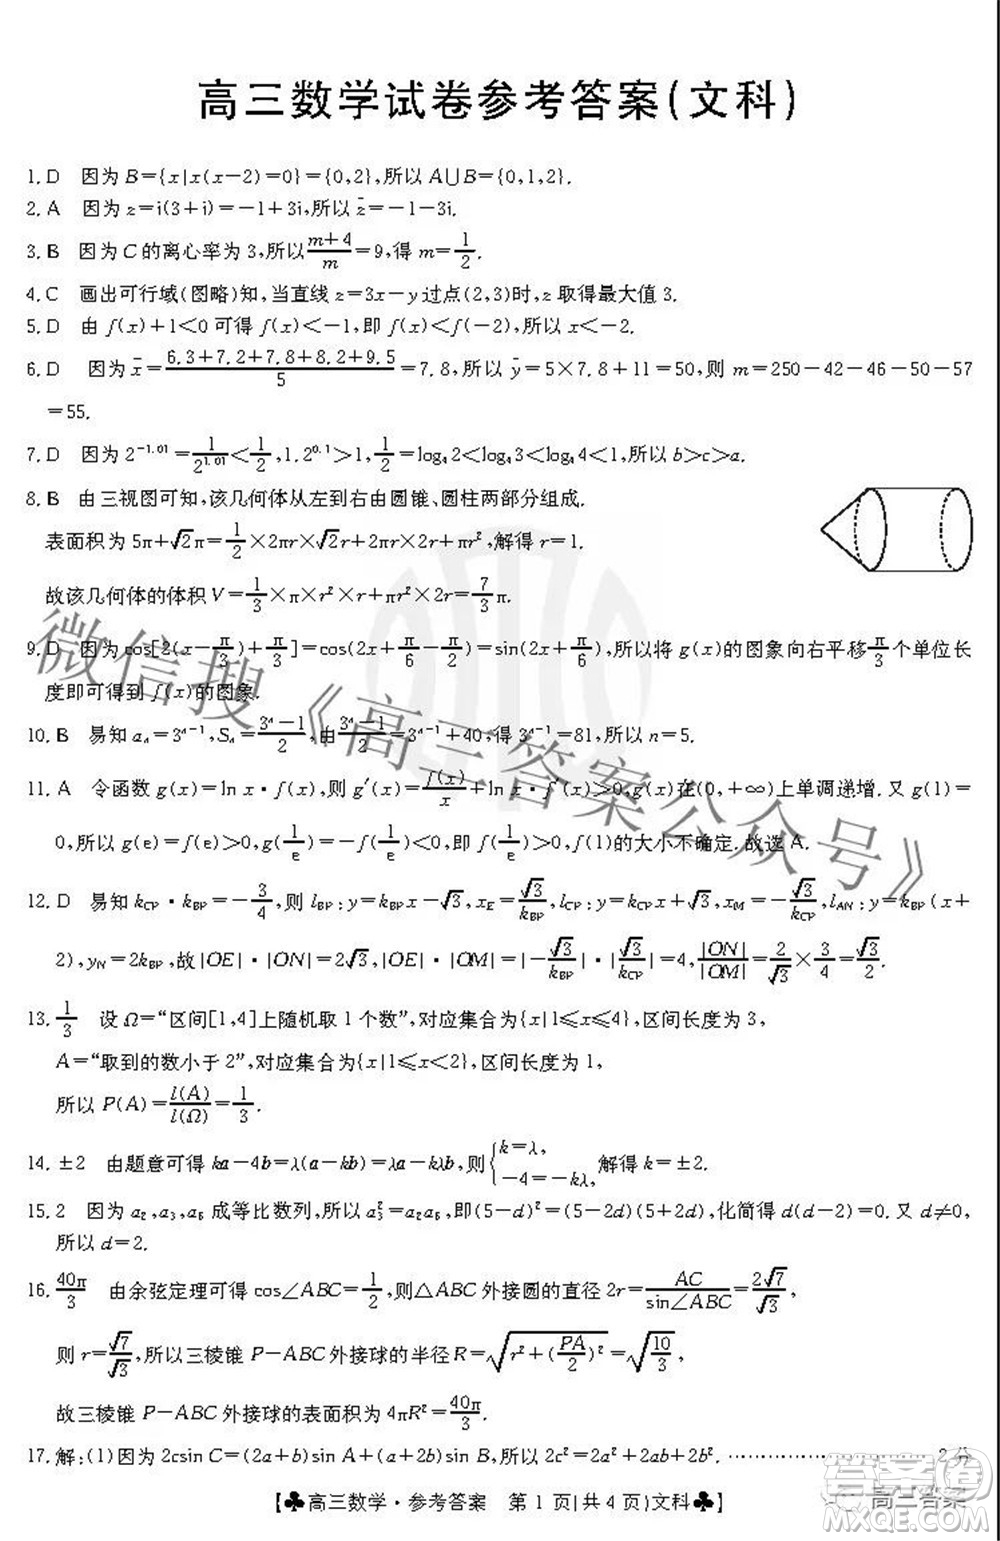 高三数学试卷参考答案(文科)
1. D 因为 B={x|x(x-2)=0}={0,2},所以 A∪B={0,1,2}.
2. A 因为 z=i(3+i)=-1+3i,所以 z̄=-1-3i.
3. B 因为 C 的离心率为 3,所以 (m+4)/m=9,得 m=1/2.
4. C 画出可行域(图略)知,当直线 z=3x-y 过点(2,3)时,z 取得最大值 3.
5. D 由 f(x)+1<0 可得 f(x)<-1,即 f(x)<f(-2),所以 x<-2.
6. D 因为 x̄=(6.3+7.2+7.8+8.2+9.5)/5=7.8,所以 ȳ=5×7.8+11=50,则 m=250-42-46-50-57
=55.
7. D 因为 2^(-1.01)=1/2^(1.01)<1/2,1.2^(0.1)>1,1/2=log₄2<log₄3<log₄4=1,所以 b>c>a.
8. B 由三视图可知,该几何体从左到右由圆锥、圆柱两部分组成.
表面积为 5π+√2π=1/2×2πr×√2r+2πr×2r+πr²,解得 r=1.
故该几何体的体积 V=1/3×π×r²×r+πr²×2r=7/3π.
9. D 因为 cos[2(x-π/3)+π/3]=cos(2x+π/6-π/2)=sin(2x+π/6),所以将 g(x)的图象向右平移 π/3 个单位长
度即可得到 f(x)的图象.
10. B 易知 aₙ=3^(n-1),Sₙ=(3ⁿ-1)/2,由 (3ⁿ-1)/2=3^(n-1)+40,得 3^(n-1)=81,所以 n=5.
11. A 令函数 g(x)=ln x·f(x),则 g′(x)=f(x)/x+ln x·f′(x)>0,g(x)在(0,+∞)上单调递增.又 g(1)=
0,所以 g(e)=f(e)>0,g(1/e)=-f(1/e)<0,即 f(1/e)>0,f(1)的大小不确定.故选 A.
12. D 易知 k_CP·k_BP=-3/4,则 l_BP:y=k_BP x-√3,x_E=√3/k_BP,l_CP:y=k_CP x+√3,x_M=-√3/k_CP,l_AN:y=k_BP(x+
2),y_N=2k_BP,故|OE|·|ON|=2√3,|OE|·|OM|=|-√3/k_BP|·|√3/k_CP|=4,|ON|/|OM|=2/√3×3/4=√3/2.
13. 1/3 设 Ω=“区间[1,4]上随机取 1 个数”,对应集合为{x|1≤x≤4},区间长度为 3,
A=“取到的数小于 2”,对应集合为{x|1≤x<2},区间长度为 1,
所以 P(A)=l(A)/l(Ω)=1/3.
14. ±2 由题意可得 ka-4b=λ(a-kb)=λa-kλb,则{k=λ, -4=-kλ, 解得 k=±2.
15. 2 因为 a₂,a₃,a₆ 成等比数列,所以 a₃²=a₂a₆,即(5-d)²=(5-2d)(5+2d),化简得 d(d-2)=0.又 d≠0,
所以 d=2.
16. 40π/3 由余弦定理可得 cos∠ABC=1/2,则△ABC 外接圆的直径 2r=AC/sin∠ABC=2√7/√3,
则 r=√7/√3,所以三棱锥 P-ABC外接球的半径 R=√(r²+(PA/2)²)=√(10/3),
故三棱锥 P-ABC 外接球的表面积为 4πR²=40π/3.
17. 解:(1)因为 2csin C=(2a+b)sin A+(a+2b)sin B,所以 2c²=2a²+2ab+2b². ………………… 2 分
【♣高三数学·参考答案 第 1 页(共 4 页)文科♣】
微信搜《高三答案公众号》
高三答案
答案圈
MXQE.COM